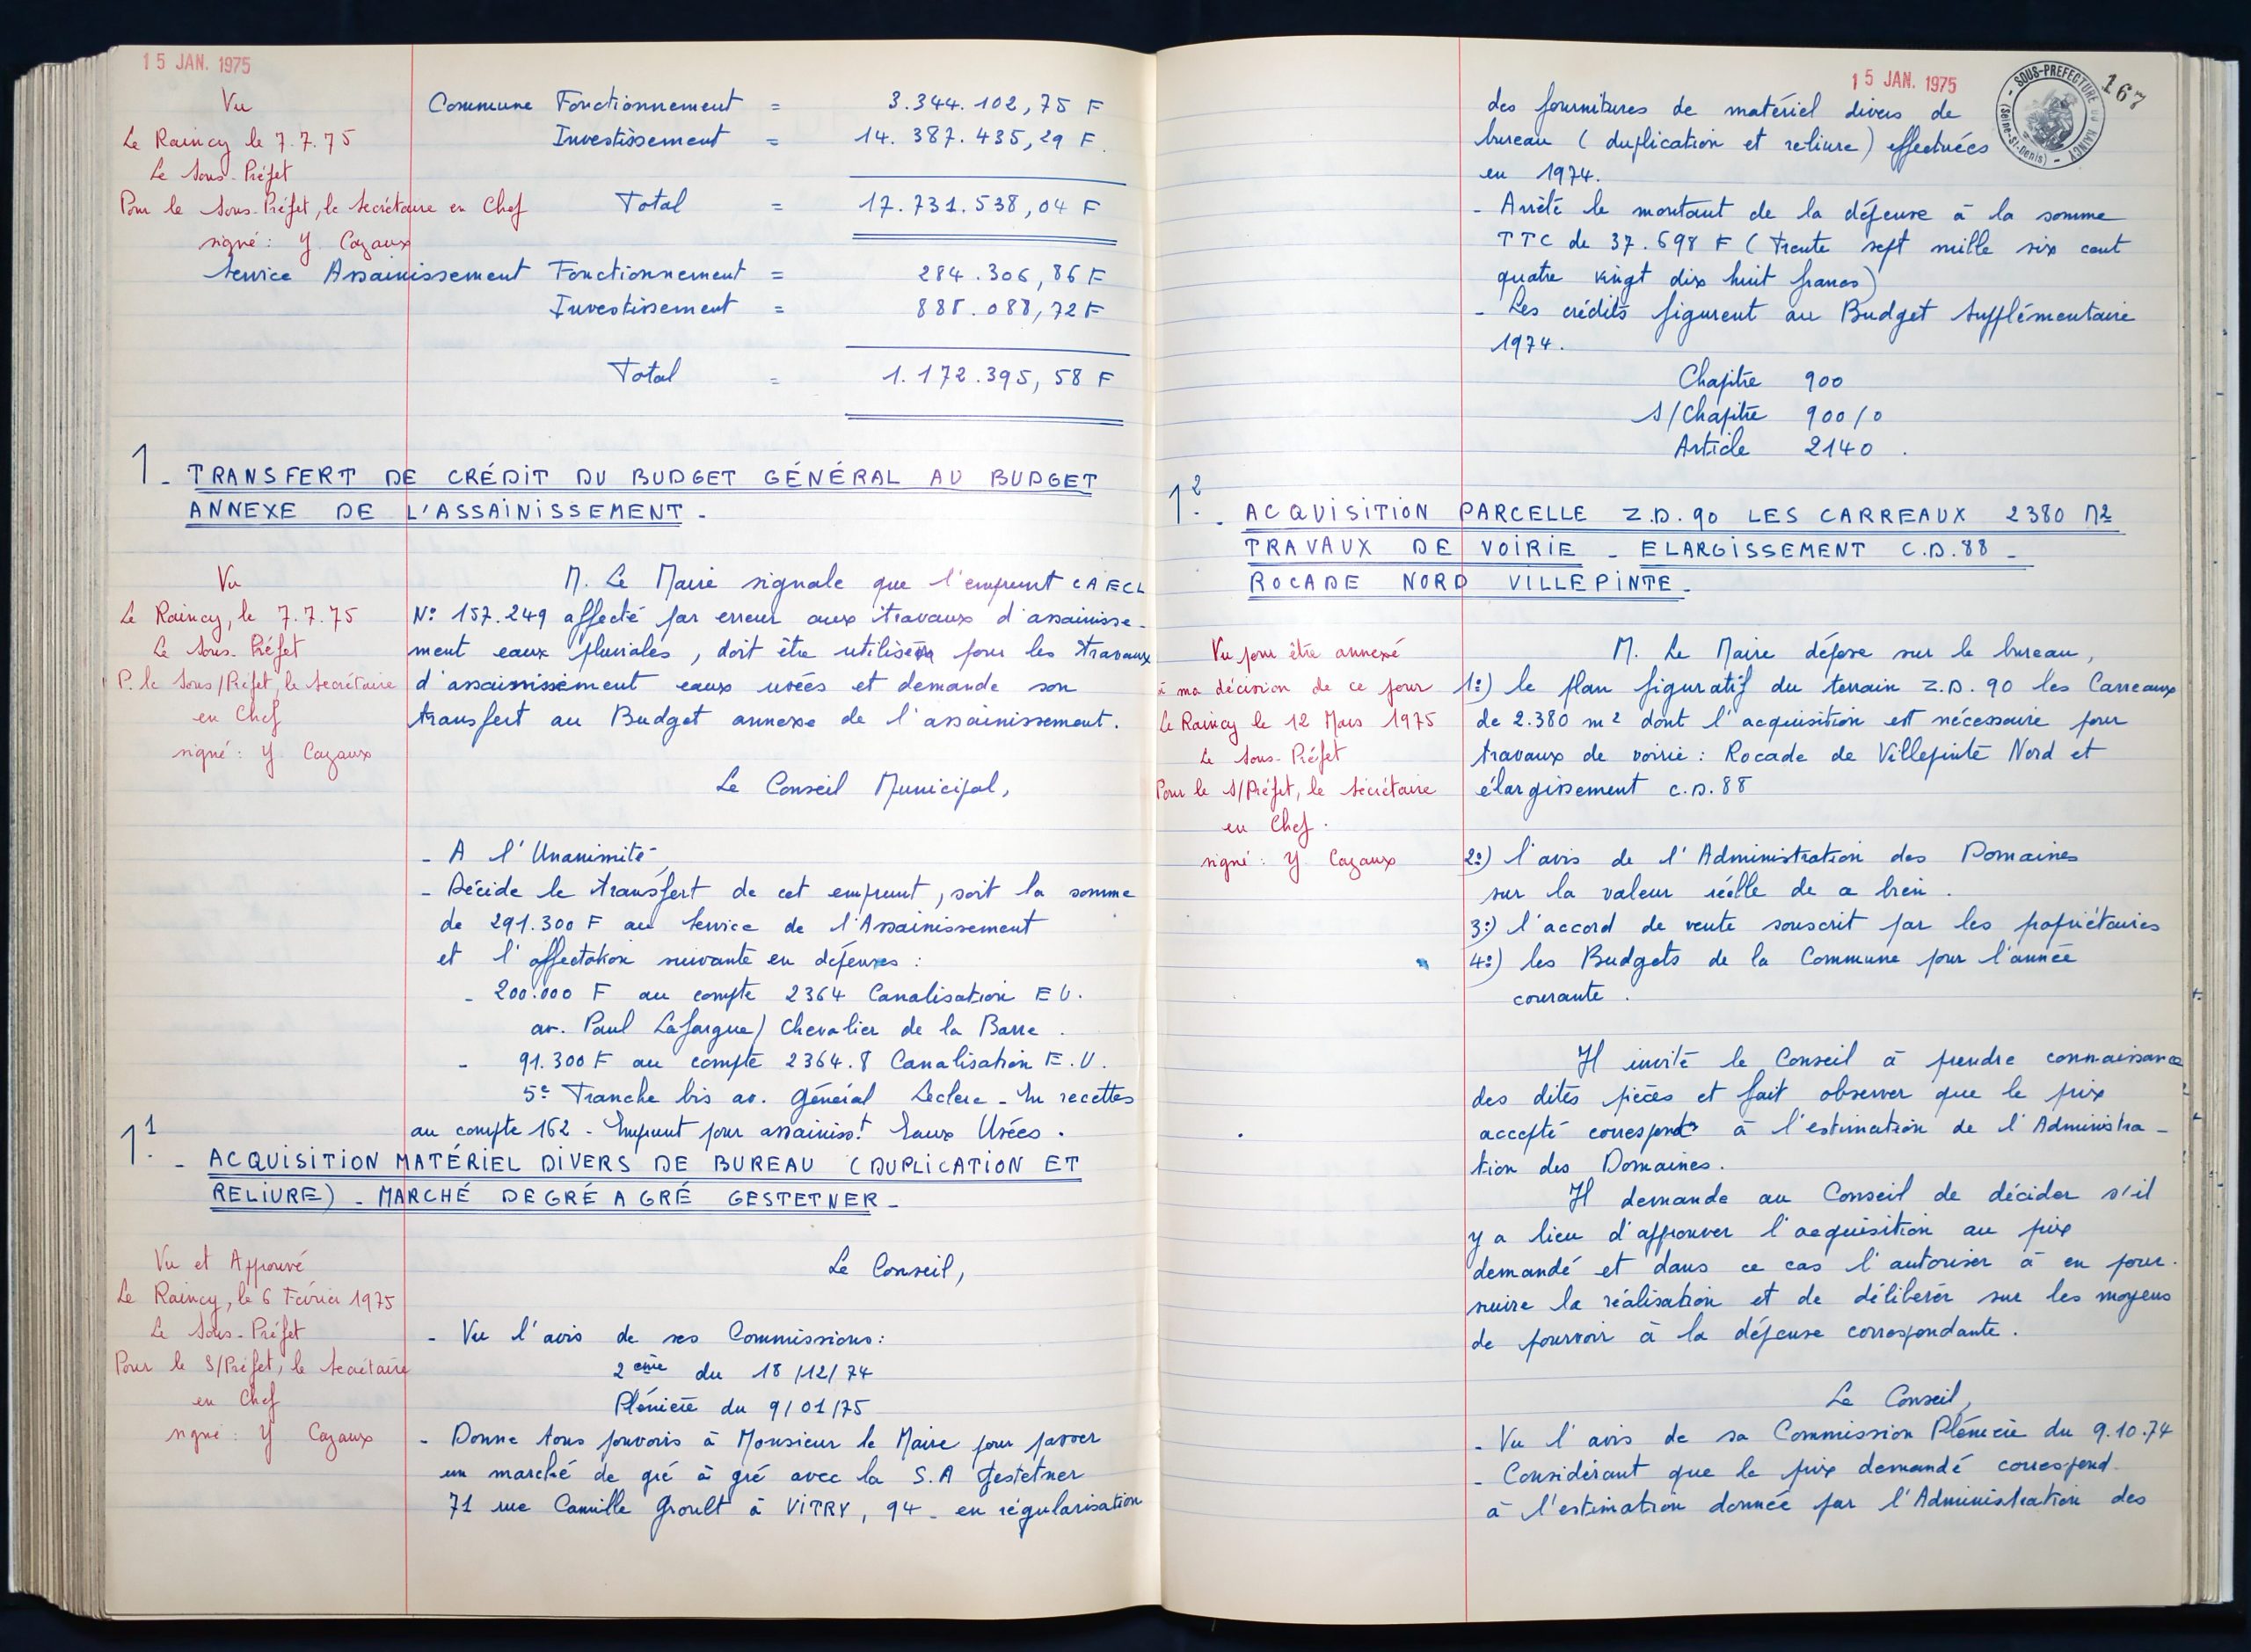 15 JAN. 1975
Vu
Le Raincy le 7.7.75
Le Sous-Préfet
Pour le Sous-Préfet, le Secrétaire en Chef
signé : Y Cazaux
Commune Fonctionnement = 3.344.102,75 F
Investissement = 14.387.435,29 F.
Total = 17.731.538,04 F
Service Assainissement Fonctionnement = 284.306,86 F
Investissement = 888.088,72 F
Total = 1.172.395,58 F
1 - TRANSFERT DE CRÉDIT DU BUDGET GÉNÉRAL AU BUDGET
ANNEXE DE L'ASSAINISSEMENT -
Vu
Le Raincy, le 7.7.75
Le Sous-Préfet
P. le Sous/Préfet, le Secrétaire
en Chef
signé : Y Cazaux
M. Le Maire signale que l'emprunt CAECL
N° 157.249 affecté par erreur aux travaux d'assainisse-
ment eaux pluviales, doit être utilisé pour les travaux
d'assainissement eaux usées et demande son
transfert au Budget annexe de l'assainissement.
Le Conseil Municipal,
- A l'Unanimité,
- Décide le transfert de cet emprunt, soit la somme
de 291.300 F au Service de l'Assainissement
et l'affectation suivante en dépenses :
- 200.000 F au compte 2364 Canalisation E U.
av. Paul Lafargue) Chevalier de la Barre.
- 91.300 F au compte 2364.8 Canalisation E.U.
5e Tranche bis av. Général Leclerc - En recettes
au compte 162 - Emprunt pour assainisst Eaux Usées.
1.1 - ACQUISITION MATÉRIEL DIVERS DE BUREAU (DUPLICATION ET
RELIURE) - MARCHÉ DE GRÉ A GRÉ GESTETNER -
Vu et Approuvé
Le Raincy, le 6 Février 1975
Le Sous-Préfet
Pour le S/Préfet, le Secrétaire
en Chef
signé : Y Cazaux
Le Conseil,
- Vu l'avis de ses Commissions :
2ème du 18/12/74
Plénière du 9/01/75
- Donne tous pouvoirs à Monsieur le Maire pour passer
un marché de gré à gré avec la S.A Gestetner
71 rue Camille Groult à VITRY, 94 - en régularisation
15 JAN. 1975
SOUS-PREFECTURE DU RAINCY
(Seine-St-Denis)
167
des fournitures de matériel divers de
bureau (duplication et reliure) effectuées
en 1974.
- Arrête le montant de la dépense à la somme
TTC de 37.698 F (Trente sept mille six cent
quatre vingt dix huit francs)
- Les crédits figurent au Budget Supplémentaire
1974.
Chapitre 900
S/Chapitre 900/0
Article 2140.
1.2 - ACQUISITION PARCELLE Z.D.90 LES CARREAUX 2380 M2
TRAVAUX DE VOIRIE - ELARGISSEMENT C.D.88 -
ROCADE NORD VILLEPINTE -
Vu pour être annexé
à ma décision de ce jour
Le Raincy le 12 Mars 1975
Le Sous-Préfet
Pour le S/Préfet, le Secrétaire
en Chef.
signé : Y Cazaux
M. Le Maire dépose sur le bureau,
1°) le plan figuratif du terrain Z.D. 90 les Carreaux
de 2.380 m2 dont l'acquisition est nécessaire pour
travaux de voirie : Rocade de Villepinte Nord et
élargissement C.D.88
2°) l'avis de l'Administration des Domaines
sur la valeur réelle de ce bien.
3°) l'accord de vente souscrit par les propriétaires
4°) les Budgets de la Commune pour l'année
courante.
Il invite le Conseil à prendre connaissance
des dites pièces et fait observer que le prix
accepté correspond à l'estimation de l'Administra-
tion des Domaines.
Il demande au Conseil de décider s'il
y a lieu d'approuver l'acquisition au prix
demandé et dans ce cas l'autoriser à en pour-
suivre la réalisation et de délibérer sur les moyens
de pourvoir à la dépense correspondante.
Le Conseil,
- Vu l'avis de sa Commission Plénière du 9.10.74
- Considérant que le prix demandé correspond
à l'estimation donnée par l'Administration des